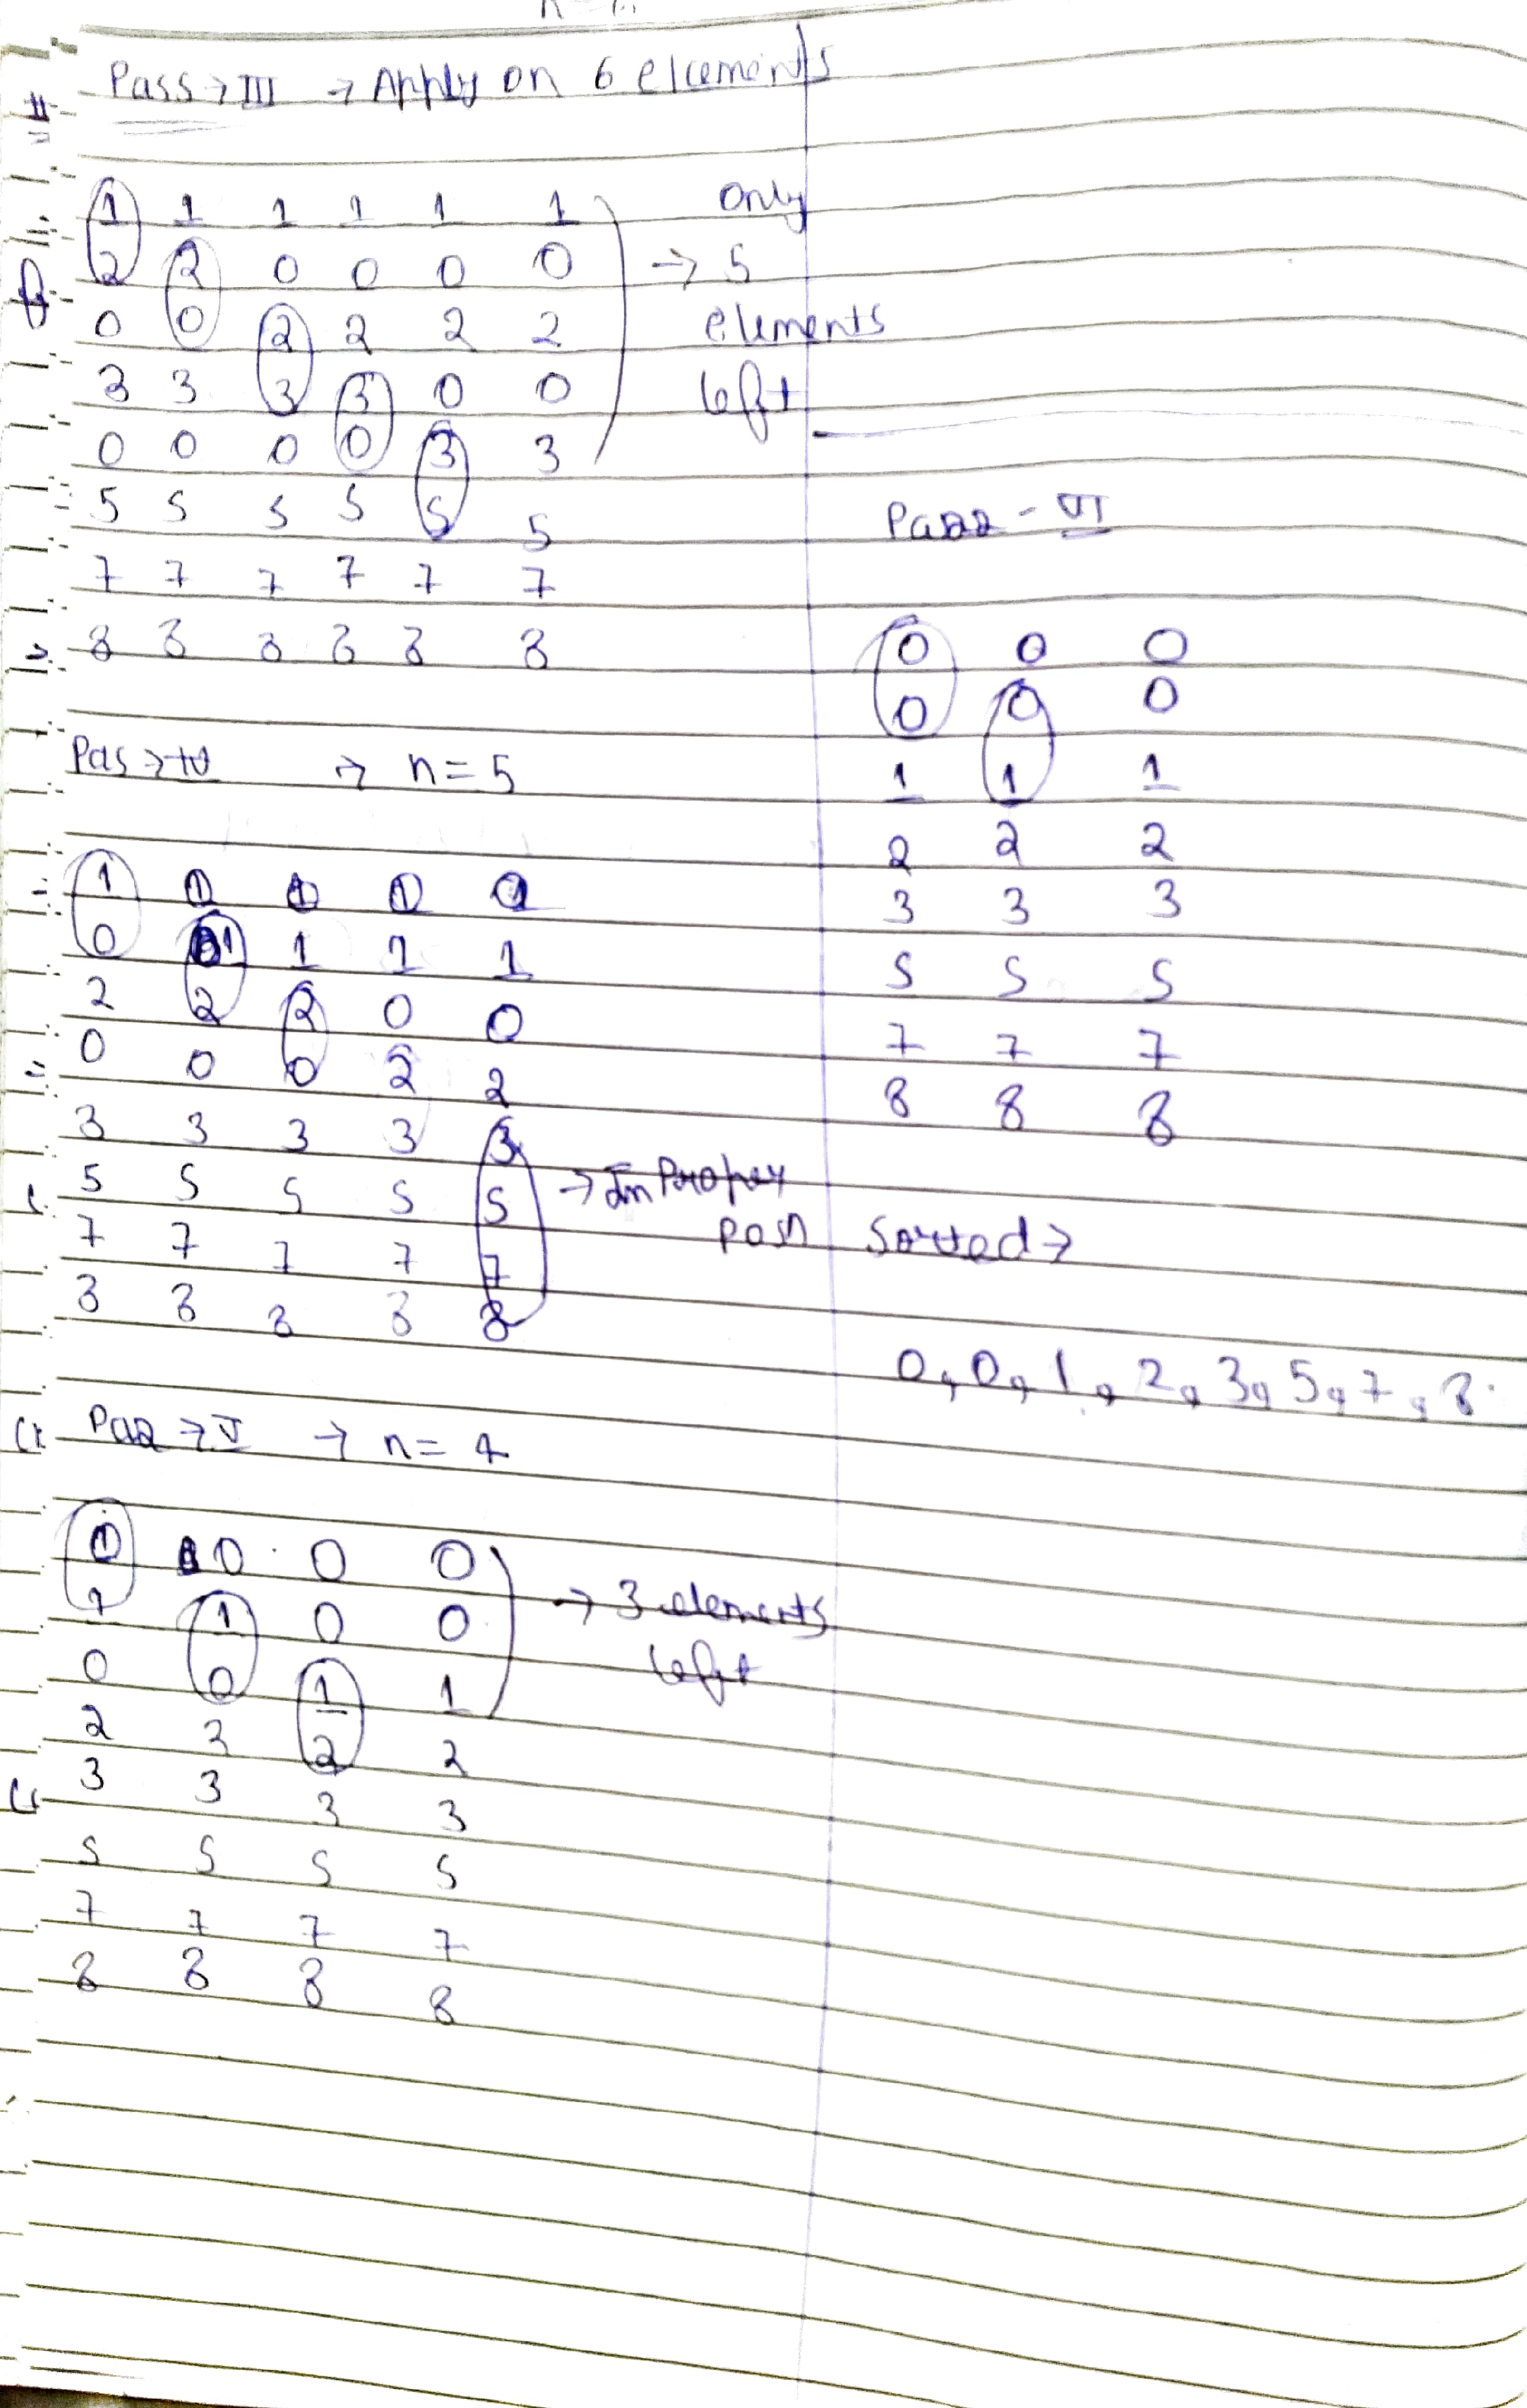 Pass → III → Apply on 6 elements
1 1 1 1 1 1
2 2 0 0 0 0
0 0 2 2 2 2
3 3 3 3 0 0
0 0 0 0 3 3
5 5 5 5 5 5
7 7 7 7 7 7
8 8 8 8 8 8
only
→ 5
elements
left
Pas → IV → n = 5
1 0 0 0 0
0 1 1 1 1
2 2 2 0 0
0 0 0 2 2
3 3 3 3 3
5 5 5 5 5
7 7 7 7 7
8 8 8 8 8
→ In Proper
posn
Pass → V → n = 4
0 0 0 0
1 1 0 0
0 0 1 1
2 2 2 2
3 3 3 3
5 5 5 5
7 7 7 7
8 8 8 8
→ 3 elements
left
Pass - VI
0 0 0
0 0 0
1 1 1
2 2 2
3 3 3
5 5 5
7 7 7
8 8 8
Sorted →
0, 0, 1, 2, 3, 5, 7, 8.